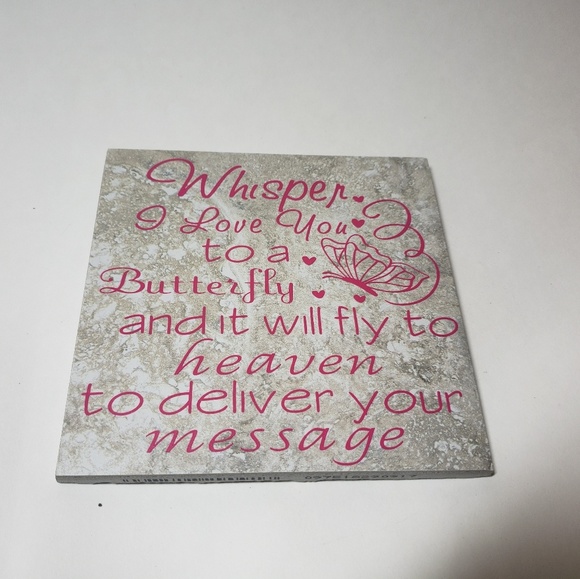 Whisper
I Love You
to a
Butterfly
and it will fly to
heaven
to deliver your
message